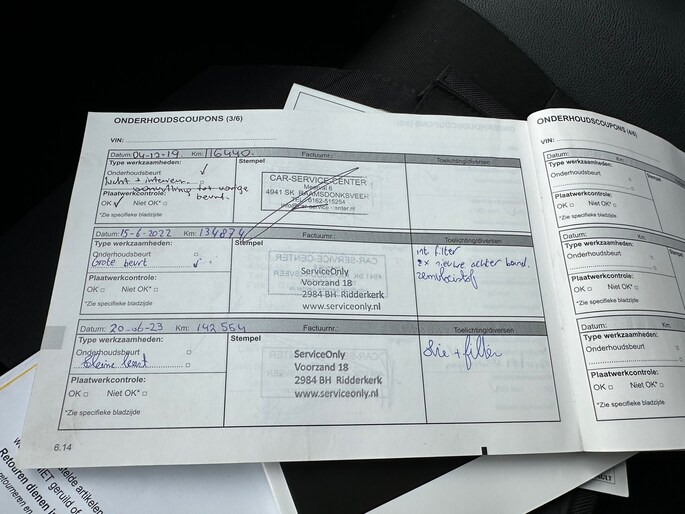 ONDERHOUDSCOUPONS (3/6)
VIN:
Datum: 04-12-19 Km: 116440. Factuurnr.: Toelichting/diversen
Type werkzaamheden: Stempel
Onderhoudsbeurt ✓
lucht + interieur
tot vorige
beurt.
Plaatwerkcontrole:
OK ✓ Niet OK* □
*Zie specifieke bladzijde
CAR-SERVICE-CENTER
4941 SK RAAMSDONKSVEER
TEL. 0162-515254
Datum: 15-6-2022 Km: 134874 Factuurnr.: Toelichting/diversen
Type werkzaamheden: Stempel
Onderhoudsbeurt □
Grote beurt ✓
Plaatwerkcontrole:
OK □ Niet OK* □
*Zie specifieke bladzijde
ServiceOnly
Voorzand 18
2984 BH Ridderkerk
www.serviceonly.nl
int filter
2x nieuwe achter band.
remvloeistof
Datum: 20-06-23 Km: 142 554 Factuurnr.: Toelichting/diversen
Type werkzaamheden: Stempel
Onderhoudsbeurt □
kleine beurt □
Plaatwerkcontrole:
OK □ Niet OK* □
*Zie specifieke bladzijde
ServiceOnly
Voorzand 18
2984 BH Ridderkerk
www.serviceonly.nl
Olie + filter
6.14
ONDERHOUDSCOUPONS (4/6)
VIN:
Datum:
Type werkzaamheden:
Onderhoudsbeurt □
Plaatwerkcontrole:
OK □ Niet OK* □
*Zie specifieke bladzijde
Datum:
Type werkzaamheden:
Onderhoudsbeurt □
Plaatwerkcontrole:
OK □ Niet OK* □
*Zie specifieke bladzijde
Datum:
Type werkzaamheden:
Onderhoudsbeurt □
Plaatwerkcontrole:
OK □ Niet OK* □
*Zie specifieke bladzijde
stelde artikelen
geruild of
Retouren dienen
retourneren en